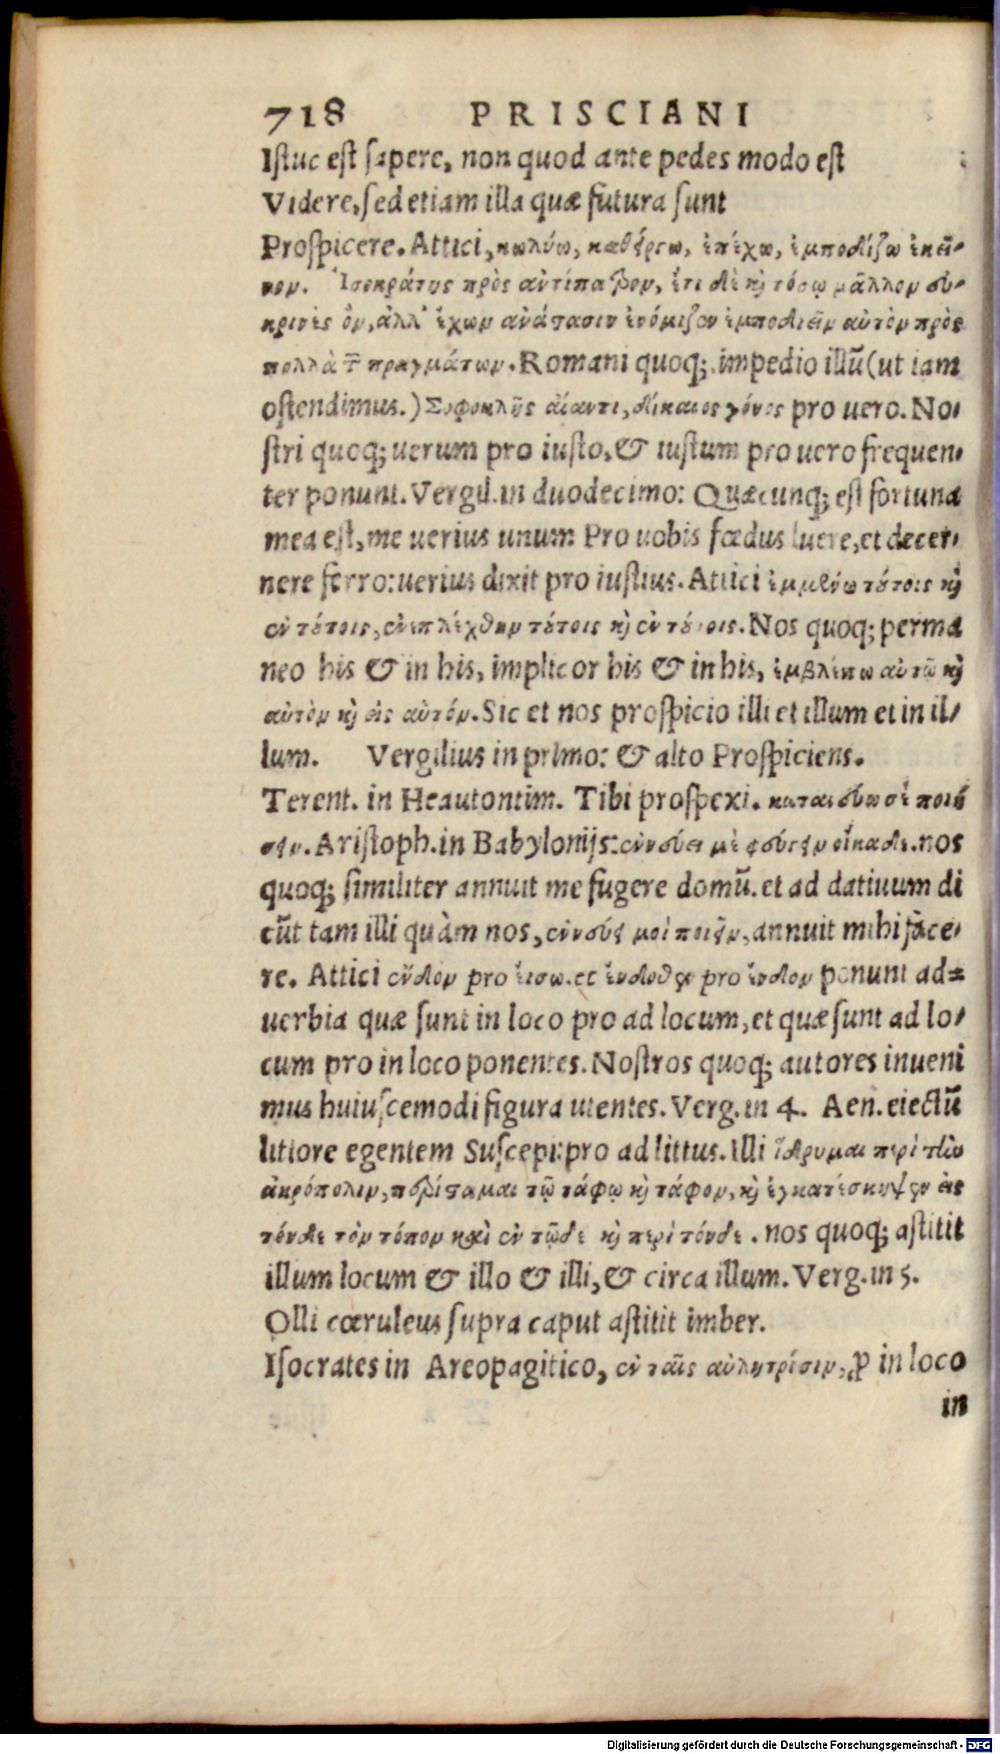 718 PRISCIANI
Istuc est sapere, non quod ante pedes modo est
Videre, sed etiam illa quæ futura sunt
Prospicere. Attici, κωλύω, καθείργω, ἐπέχω, ἐμποδίζω ἐκεῖ-
νον. Ἰσοκράτης πρὸς ἀντίπατρον, ἔτι δὲ καὶ τόσῳ μᾶλλον
ἐνόμιζον ἐμποδιεῖν αὐτὸν πρὸς
πολλὰ τῶν πραγμάτων. Romani quoq; impedio illũ (ut iam
ostendimus.) Σοφοκλῆς αἴαντι, δίκαιος γόνος pro uero. No-
stri quoq; uerum pro iusto, & iustum pro uero frequen-
ter ponunt. Vergil. in duodecimo: Quæcunq; est fortuna
mea est, me uerius unum Pro uobis fœdus luere, et decer-
nere ferro: uerius dixit pro iustius. Attici ἐμμένω τούτοις καὶ
ἐν τούτοις, ἐνεπλέχθην τούτοις καὶ ἐν τούτοις. Nos quoq; perma
neo his & in his, implicor his & in his, ἐμβλέπω αὐτῷ καὶ
αὐτὸν καὶ εἰς αὐτόν. Sic et nos prospicio illi et illum et in il-
lum. Vergilius in primo: & alto Prospiciens.
Terent. in Heautontim. Tibi prospexi. σὲ ποιή
σειν. Aristoph. in Babylonijs: οἴκαδε. nos
quoq; similiter annuit me fugere domũ. et ad datiuum di
cũt tam illi quàm nos, ἐννεύει μοὶ ποιεῖν, annuit mihi face-
re. Attici ἔνδον pro εἴσω. et ἔνδοθεν pro ἔνδον ponunt ad-
uerbia quæ sunt in loco pro ad locum, et quæ sunt ad lo-
cum pro in loco ponentes. Nostros quoq; autores inueni
mus huiuscemodi figura utentes. Verg. in 4. Aen. eiectũ
littore egentem Suscepi: pro ad littus. Illi ἵδρυμαι περὶ τὴν
ἀκρόπολιν, παρίσταμαι τῷ τάφῳ καὶ τάφον, καὶ ἐγκατέσκηψεν εἰς
τόνδε τὸν τόπον καὶ ἐν τῷδε καὶ περὶ τόνδε. nos quoq; astitit
illum locum & illo & illi, & circa illum. Verg. in 5.
Olli cœruleus supra caput astitit imber.
Isocrates in Areopagitico, ἐν ταῖς αὐλητρίσιν, ꝓ in loco
in
Digitalisierung gefördert durch die Deutsche Forschungsgemeinschaft - DFG